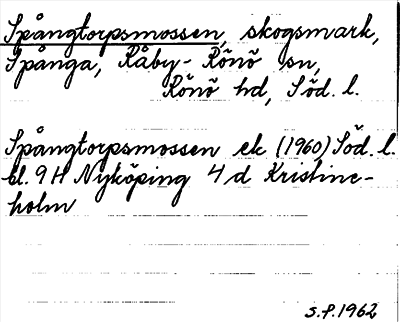 Spångtorpsmossen, skogsmark,
Spånga, Råby-Rönö sn,
Rönö hd, Söd. l.
Spångtorpsmossen ek (1960) Söd. l.
bl. 9 H Nyköping 4 d Kristine-
holm
S.P. 1962